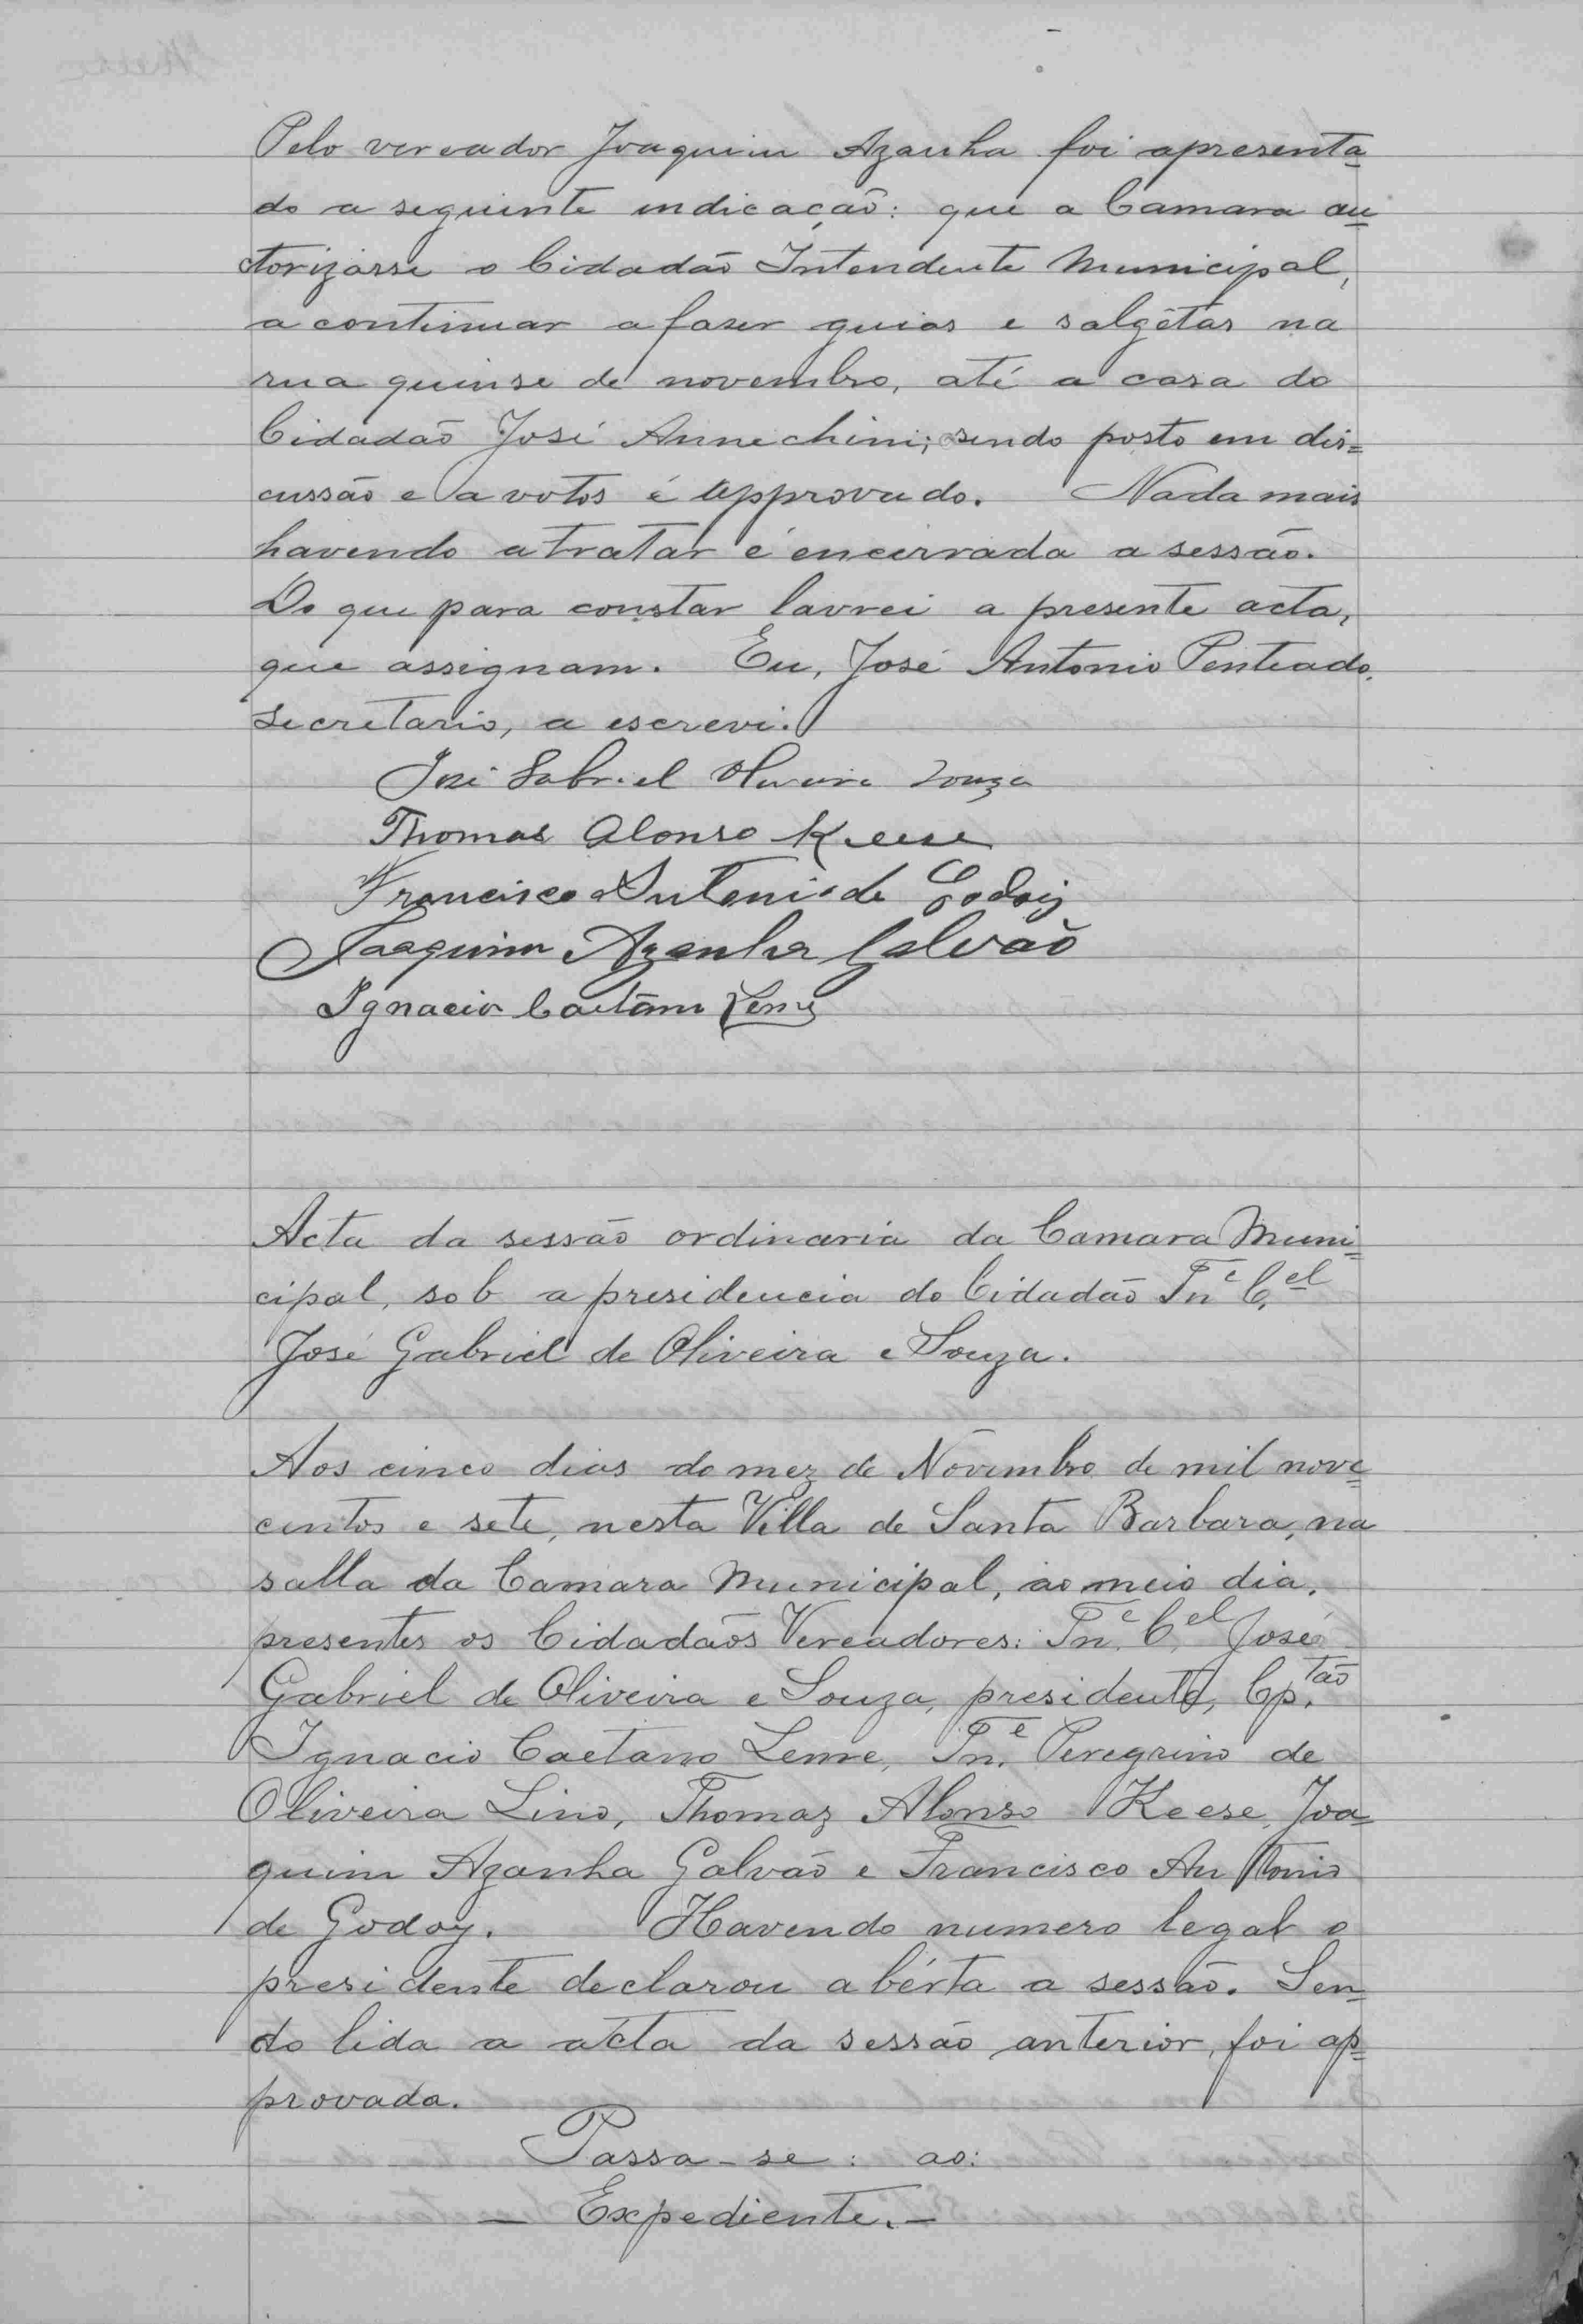 Pelo vereador Joaquim Azanha foi apresenta-
do a seguinte indicação: que a Camara au-
ctorizasse o Cidadão Intendente Municipal,
a continuar a faser guias e salgêtas na
rua quinse de novembro, até a casa do
Cidadão José Annechini; sendo posto em dis=
cussão e a votos é approvado. Nada mais
havendo a tratar é encerrada a sessão.
Do que para constar lavrei a presente acta,
que assignam. Eu, José Antonio Penteado,
Secretario, a escrevi.
José Gabriel Oliveira Souza
Thomas Alonso Keese
Francisco Antonio de Godoy
Joaquim Azanha Galvão
Ignacio Caetano Leme
Acta da sessão ordinaria da Camara Muni=
cipal, sob a presidencia do Cidadão Tn.e C.el
José Gabriel de Oliveira e Souza.
Aos cinco dias do mez de Novembro de mil nove=
centos e sete, nesta Villa de Santa Barbara, na
salla da Camara Municipal, ao meio dia,
presentes os Cidadãos Vereadores: Tn.e C.el José
Gabriel de Oliveira e Souza, presidente, Cp.tão
Ignacio Caetano Leme, Tn.e Peregrino de
Oliveira Lino, Thomaz Alonso Keese, Joa=
quim Azanha Galvão e Francisco Antonio
de Godoy. Havendo numero legal o
presidente declarou abérta a sessão. Sen=
do lida a acta da sessão anterior, foi ap=
provada.
Passa-se: ao:
— Expediente. —